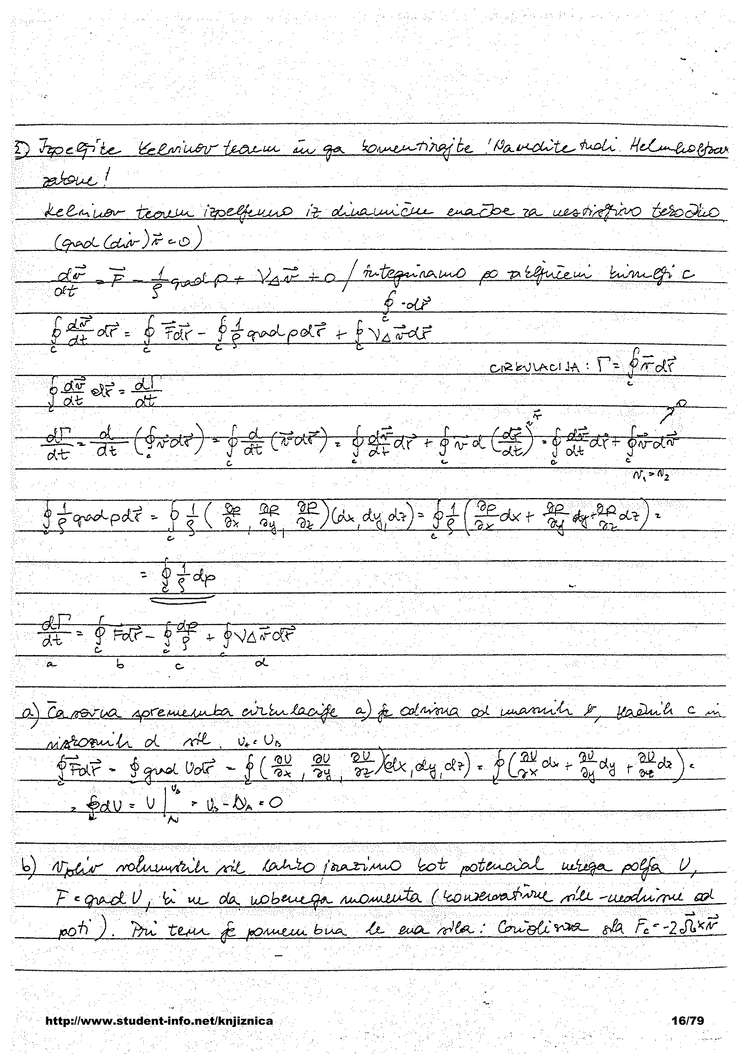 Izpeljite Kelvinov teorem in ga komentirajte! Navedite tudi Helmholtzove
zakone!
Kelvinov teorem izpeljemo iz dinamične enačbe za nestisljivo tekočino
(grad (div) v⃗ = 0)
dv⃗/dt = F⃗ - 1/ρ grad p + ν Δ v⃗ + 0 / integriramo po zaključeni krivulji c
∮c · dr⃗
∮c dv⃗/dt dr⃗ = ∮c F⃗ dr⃗ - ∮c 1/ρ grad p dr⃗ + ∮c ν Δ v⃗ dr⃗
CIRKULACIJA : Γ = ∮c v⃗ dr⃗
∮c dv⃗/dt dr⃗ = dΓ/dt
dΓ/dt = d/dt (∮c v⃗ dr⃗) = ∮c d/dt (v⃗ dr⃗) = ∮c dv⃗/dt dr⃗ + ∮c v⃗ d (dr⃗/dt) = ∮c dv⃗/dt dr⃗ + ∮c v⃗ dv⃗ → 0
v₁ = v₂
∮c 1/ρ grad p dr⃗ = ∮c 1/ρ (∂p/∂x, ∂p/∂y, ∂p/∂z)(dx, dy, dz) = ∮c 1/ρ (∂p/∂x dx + ∂p/∂y dy + ∂p/∂z dz) =
= ∮c 1/ρ dp
dΓ/dt = ∮c F⃗ dr⃗ - ∮c dp/ρ + ∮c ν Δ v⃗ dr⃗
a b c d
a) Časovna sprememba cirkulacije a) je odvisna od masnih b, tlačnih c in
viskoznih d sil. U_A = U_B
∮c F⃗ dr⃗ = ∮ grad U dr⃗ = ∮ (∂U/∂x, ∂U/∂y, ∂U/∂z)(dx, dy, dz) = ∮c (∂U/∂x dx + ∂U/∂y dy + ∂U/∂z dz) =
= ∮c dU = U | = U_B - U_A = 0
b) Vpliv volumskih sil lahko izrazimo kot potencial nekega polja U,
F = grad U, ki ne da nobenega momenta (konzervativne sile - neodvisne od
poti). Pri tem je pomembna le ena sila: Coriolisova sila F_c = -2 Ω⃗ × v⃗
http://www.student-info.net/knjiznica
16/79